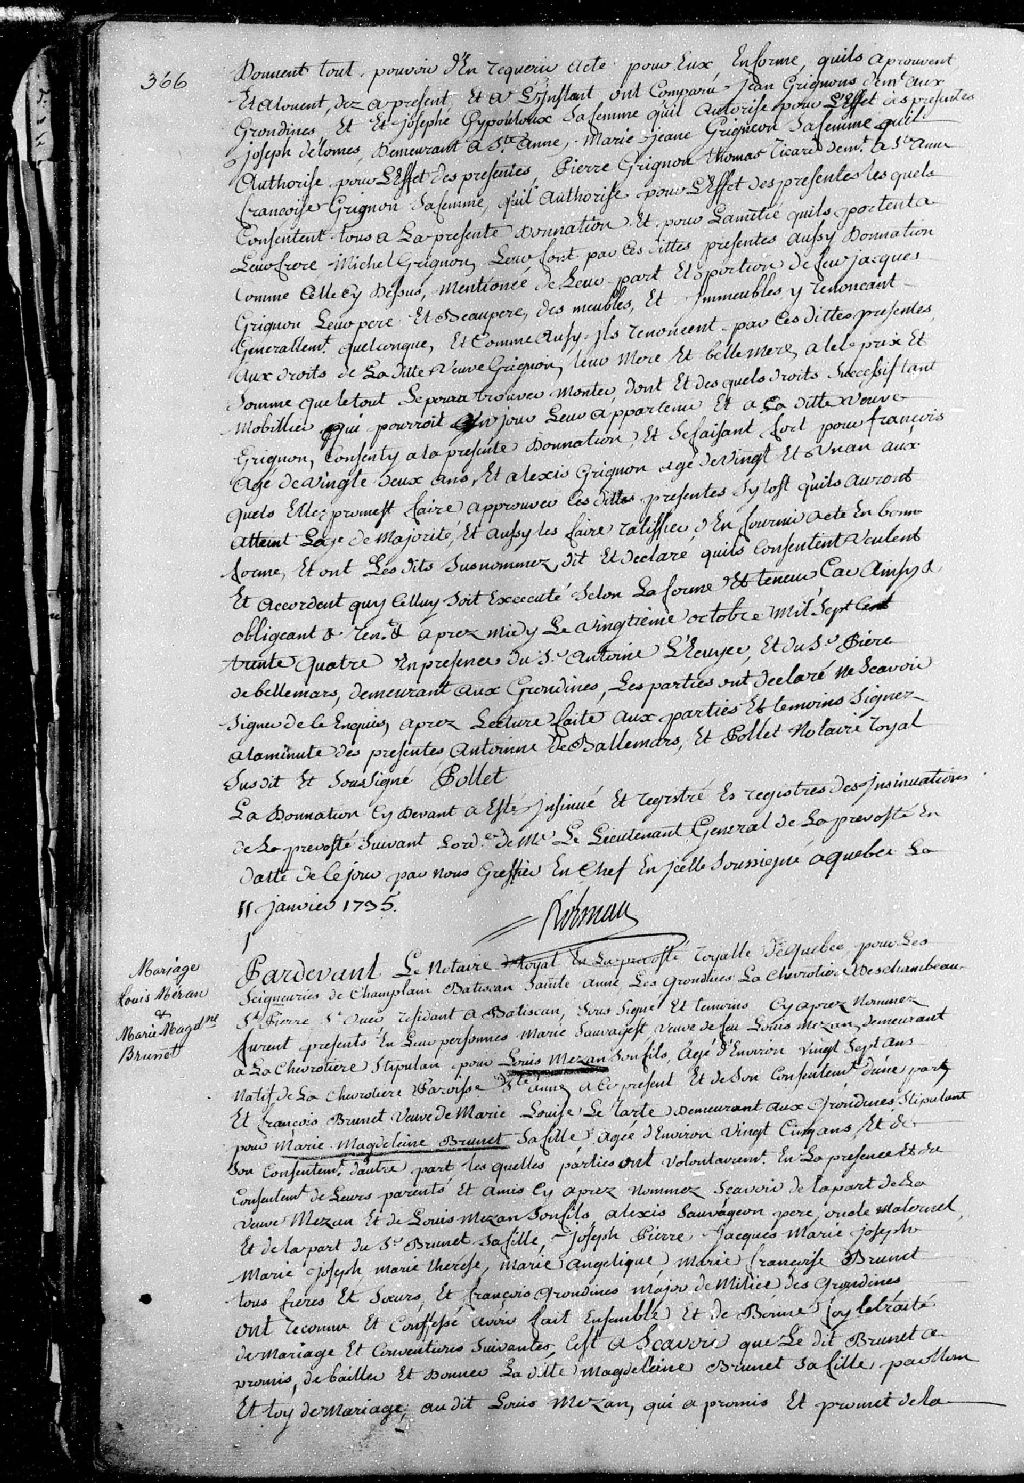 366
Donnent tout pouvoir d'En requerir Acte pour Eux En forme, quils aprouvent
Et alouent, dez a present, Et a L'Instant ont Comparu Jean Grignons dem.t aux
Grondines, Et Et josephe Sa femme quil Autorise pour L'Effet des presentes
joseph delomes, Demeurant a S.te Anne, Marie jeane Grignon Sa femme quil
Authorise pour L'Effet des presentes, Pierre Grignon thomas Ricard dem.t a S.te Anne
francoise Grignon Safemme, quil Authorise pour L'Effet des presentes les quels
Consentent tous a La presente Donnation Et pour Lamitié quils portent a
Leur frere Michel Grignon, Leur font par Ces dittes presentes Aussy Donnation
Comme Celle Cy Dessus, Mentionée de Leur part Et portion de feu jacques
Grignon Leur pere Et Beaupere, des meubles, Et Immeubles y renoncant
Generallem.t quelconque, Et Comme Aussy Ils renoncent par Ces dittes presentes
Aux droits de La ditte Veuve Grignon, leur Mere Et belle Mere, a tel prix Et
Somme que le tout Se poura trouver Monter, dont Et des quels droits Successif tant
Mobillier qui pourroit Un jour Leur appartenir Et a La ditte Veuve
Grignon, Consenty a la presente Donnation Et Se faisant fort pour francois
Agé de vingte deux ans, Et alexis Grignon agé de Vingt Et Un an aux
quels Elle promest faire approuver Ces dittes presentes Sy tost quils auront
atteint L'age de Majorité, Et Aussy les faire ratiffier, d'En fournir acte En bonne
forme, Et ont Les dits Susnommez, dit Et declaré quils Consentent Veulent
Et Accordent quy Celluy Soit Excecuté Selon La forme Et teneur Car Ainsy &
obligeant & ren.t & aprez midy Le vingtieme octobre Mil Sept Cent
trente quatre En presence du S.r Antoine L'Ecuyer, Et du S.r Piere
de bellemars, demeurant aux Grondines, Les parties ont declaré ne Scavoir
Signer de le Enquis, aprez Lecture faite aux parties Et temoins Signez
a la minute des presentes Antoinne De Ballemars, Et Pollet Notaire royal
Susdit Et Soussigné Pollet
La Donnation Cy Devant a Esté Insinué Et registré Es registres des Insinuations
de La prevosté Suivant Lord.ce de M.r Le Lieutenant General de La prevosté En
datte de Ce jour par nous Greffier En Chef En Jcelle Soussigné a quebec La
11 janvier 1735.
Mariage
Louis Mézan
&
Marie Magd.ne
Brunet
Pardevant Le Notaire Royal En La prevosté royalle De Quebec pour Les
Seigneuries de Champlain Batiscan Sainte Anne Les Grondines La Chevrotiere Deschambeau
S.t Pierre S.t Ours residant a Batiscan, Sous Signé Et temoins Cy aprez Nommez
furent presents En Leur personnes Marie Sauvagest, Veuve de feu Louis Mezan, demeurant
a La Chevrotiere Stipulan pour Louis Mezan Son fils, Agé d'Environ Vingt Sept ans
Natif de La Chevrotiere Paroisse S.te anne a Ce present Et de Son Consentem.t d'une part
Et francois Brunet Veuve de Marie Louise Le tarte Demeurant aux Grondines Stipulant
pour Marie Magdeleine Brunet Safille Agée d'Environ Vingt Cinq ans, Et de
Son Consentem.t dautre part les quelles parties ont volontairem.t En La presence Et du
Consentem.t de Leurs parents Et amis Cy aprez Nommez Scavoir de la part de La
Veuve Mezan Et de Louis Mezan Son fils alexis Sauvageon pere, oncle Maternel,
Et de la part du S.r Brunet Safille, Joseph Pierre Jacques Marie Joseph
Marie Joseph marie therese, Marie angelique Marie francoise Brunet
tous freres Et Soeurs, Et francois Grondines Major de Milice des Grondines
Ont reconnu Et Confessé avoir fait Ensemble Et de Bonne foy le traité
de Mariage Et Conventions Suivantes, Cest a Scavoir que Le dit Brunet a
promis, de bailler Et Donner La ditte Magdeleine Brunet Safille par Nom
Et Loy de Mariage, au dit Louis Mezan, qui a promis Et promet de la